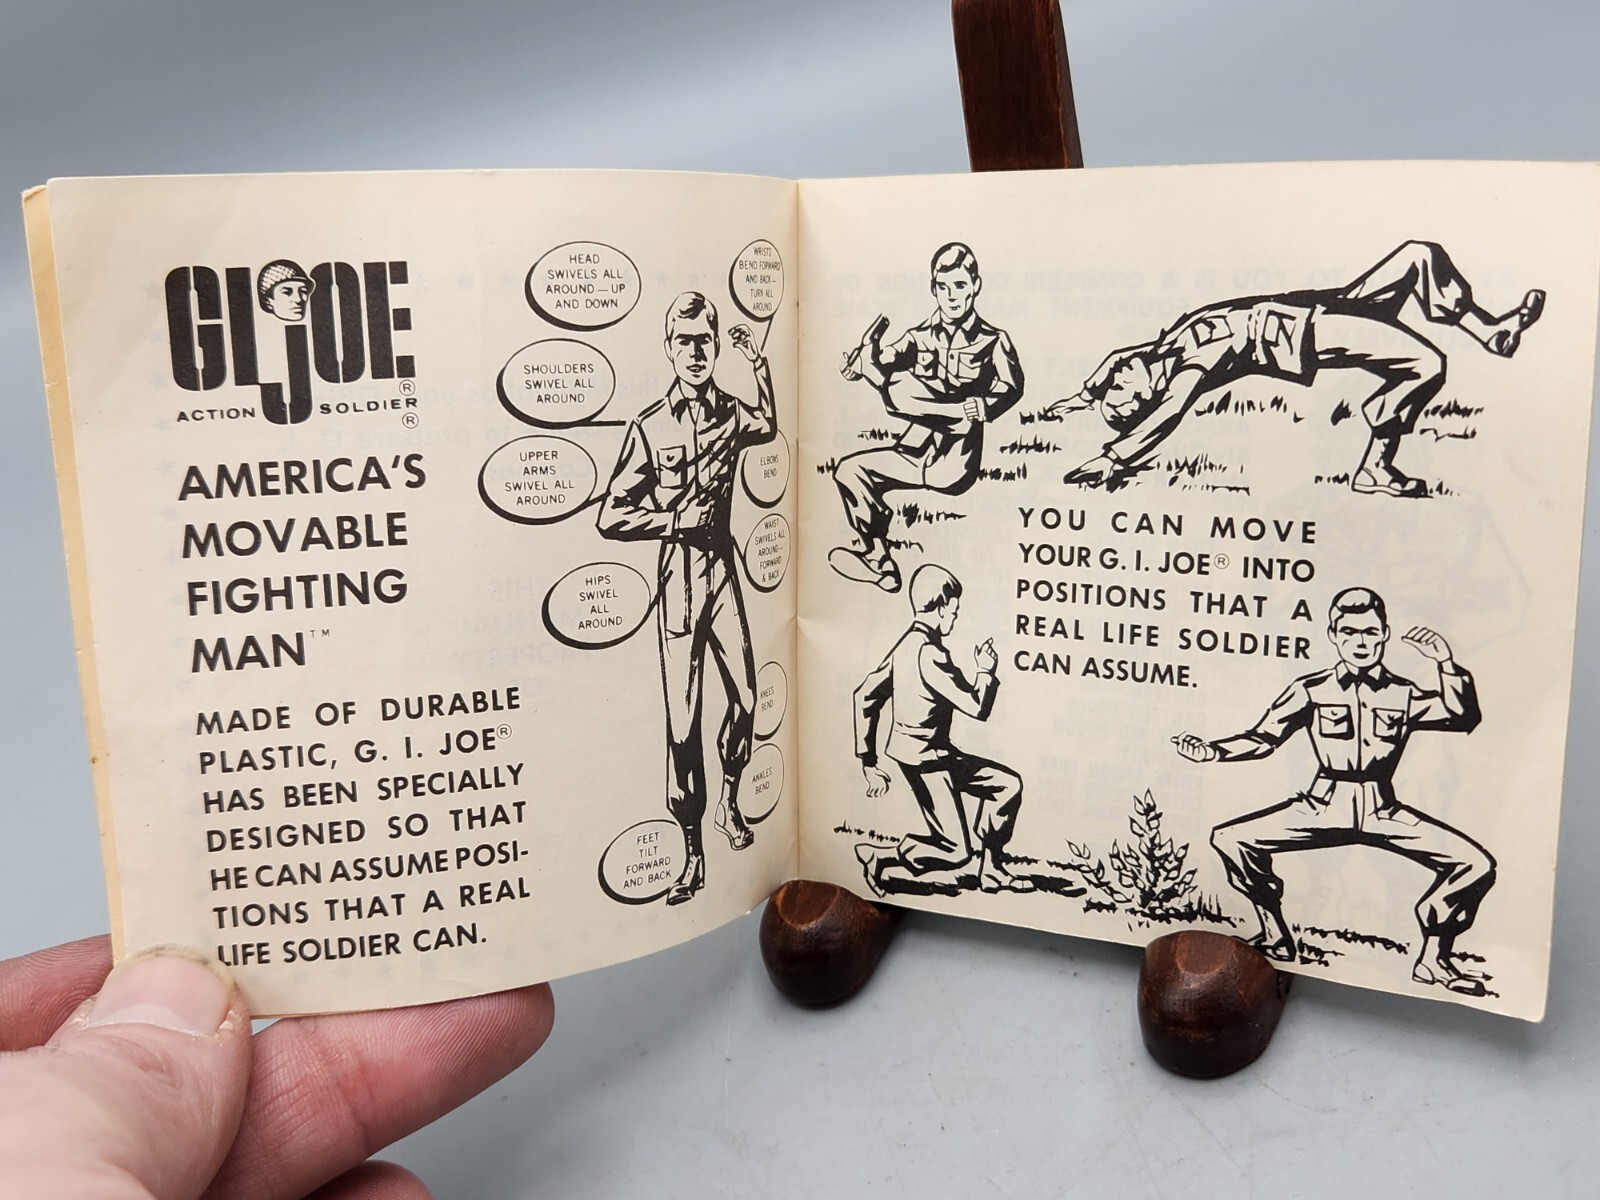 GI JOE®
ACTION SOLDIER®
AMERICA'S
MOVABLE
FIGHTING
MAN™
MADE OF DURABLE
PLASTIC, G. I. JOE®
HAS BEEN SPECIALLY
DESIGNED SO THAT
HE CAN ASSUME POSI-
TIONS THAT A REAL
LIFE SOLDIER CAN.
HEAD
SWIVELS ALL
AROUND—UP
AND DOWN
SHOULDERS
SWIVEL ALL
AROUND
UPPER
ARMS
SWIVEL ALL
AROUND
HIPS
SWIVEL
ALL
AROUND
FEET
TILT
FORWARD
AND BACK
WRISTS
BEND FORWARD
AND BACK—
TURN ALL
AROUND
ELBOWS
BEND
WAIST
SWIVELS ALL
AROUND—
FORWARD
& BACK
KNEES
BEND
ANKLES
BEND
YOU CAN MOVE
YOUR G. I. JOE® INTO
POSITIONS THAT A
REAL LIFE SOLDIER
CAN ASSUME.